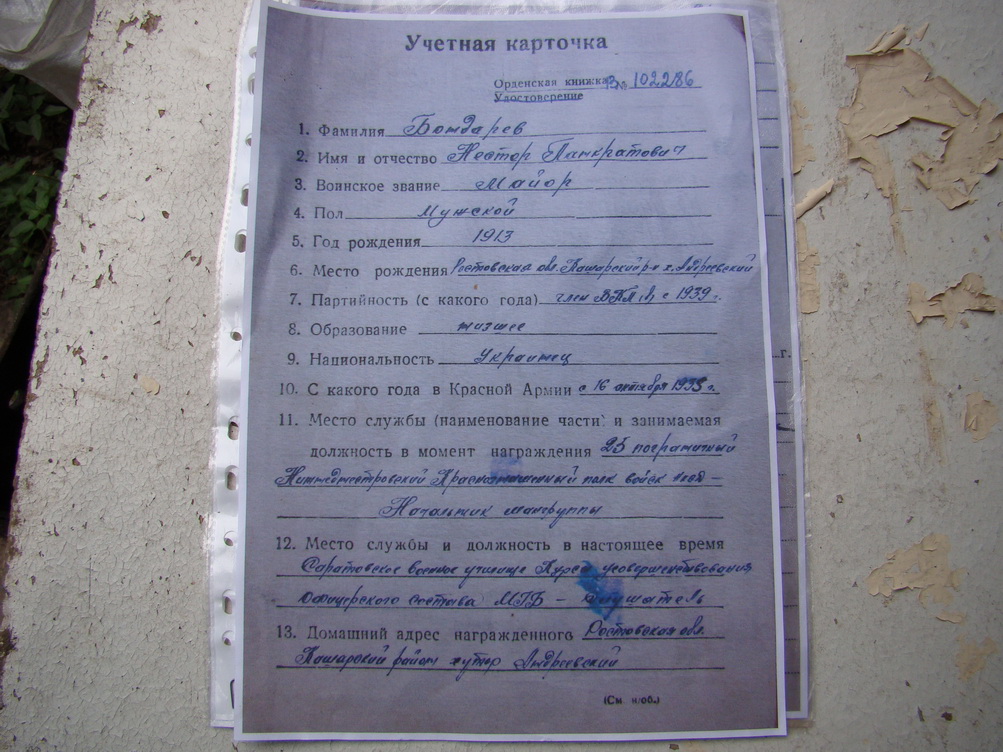 Учетная карточка
Орденская книжка В № 102286
Удостоверение
1. Фамилия Бондарев
2. Имя и отчество Нестор Панкратович
3. Воинское звание Майор
4. Пол Мужской
5. Год рождения 1913
6. Место рождения Ростовская обл. Кашарский р-н х. Андреевский
7. Партийность (с какого года) член ВКП(в) с 1939 г.
8. Образование низшее
9. Национальность Украинец
10. С какого года в Красной Армии с 16 октября 1935 г.
11. Место службы (наименование части) и занимаемая
должность в момент награждения 25 пограничный
Нижнеднестровский Краснознаменный полк войск НКВД -
Начальник мангруппы
12. Место службы и должность в настоящее время
Саратовское военное училище Курсы усовершенствования
офицерского состава МГБ - слушатель
13. Домашний адрес награжденного Ростовская обл.
Кашарский район хутор Андреевский
(См. н/об.)
г.